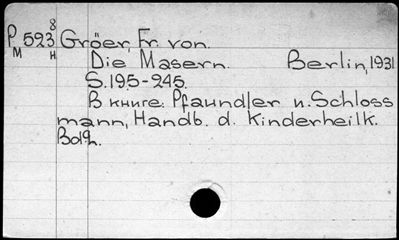 P 523 8 Gröer, Fr. von.
М Н
Die Masern. Berlin, 1931
S. 195-245.
В книге: Pfaundler u. Schloss
mann, Handb. d. Kinderheilk.
Bd 2.